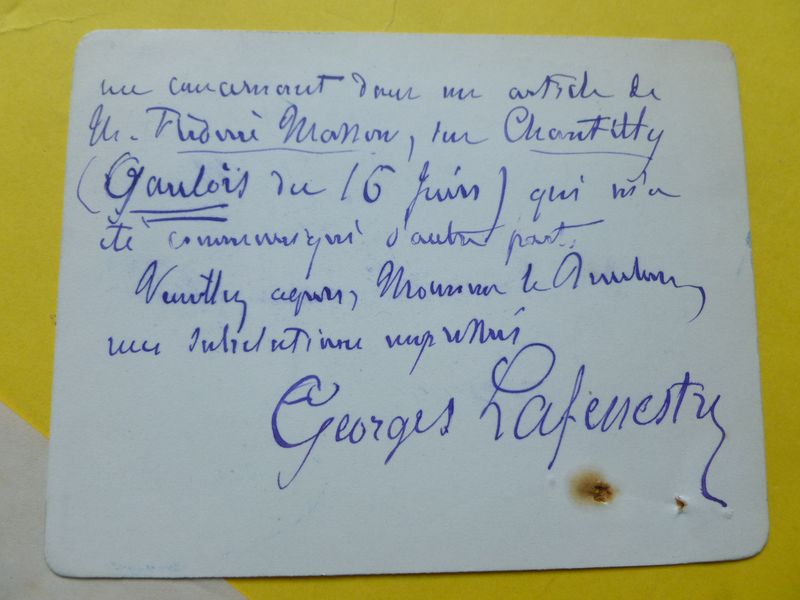 me concernant dans un article de
M. Frédéric Masson, sur Chantilly
(Gaulois du 16 Juin) qui m'a
été communiqué d'autre part.
Veuillez agréer, Monsieur le Directeur,
mes salutations empressées
Georges Lafenestre